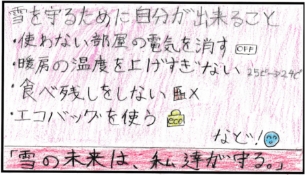 雪を守るために自分が出来ること
・使わない部屋の電気を消す OFF
・暖房の温度を上げすぎない
・食べ残しをしない
・エコバッグを使う
など!
「雪の未来は、私達が守る。」